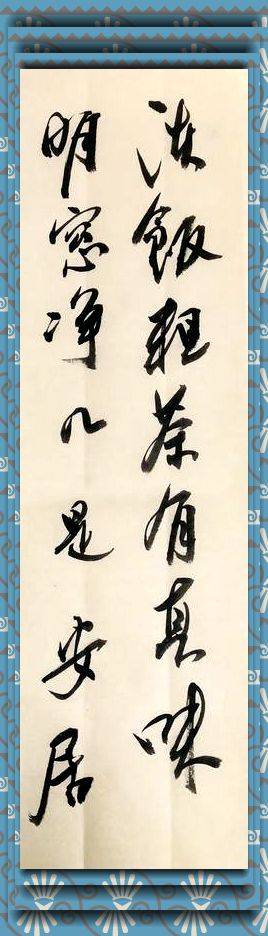 淡飯粗茶有真味
明窓净几是安居